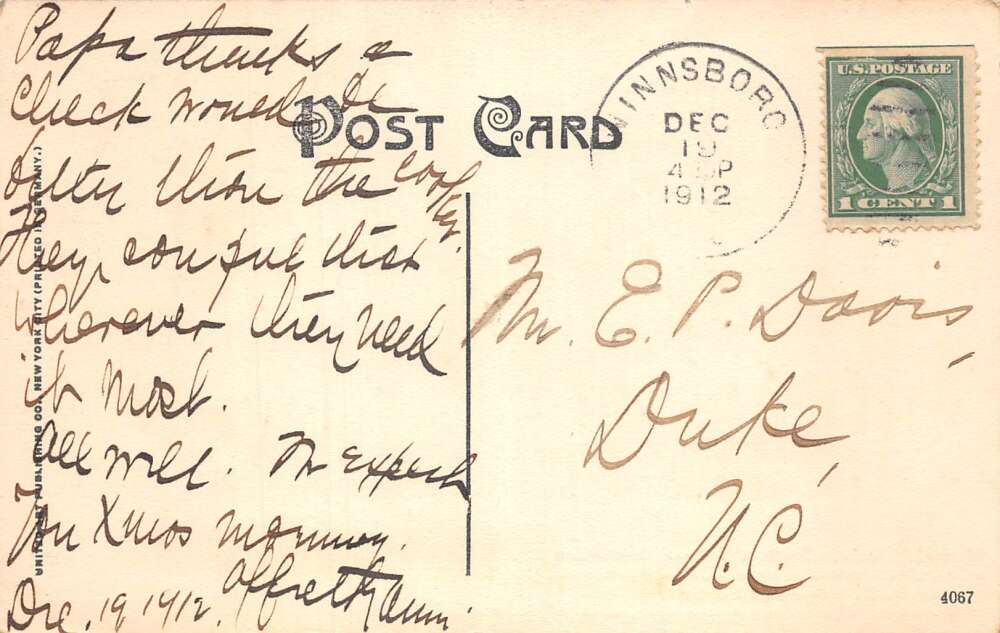 Papa thinks a
check would be
better than the cook
They can put this
wherever they need
it most.
All well. We expect
you Xmas morning.
Dec. 19 1912.
POST CARD
WINNSBORO
DEC
19
4 P
1912
U.S. POSTAGE
1 CENT 1
Mr. E. P. Davis,
Duke,
N.C.
UNITED ART PUBLISHING CO., NEW YORK CITY (PRINTED IN GERMANY.)
4067